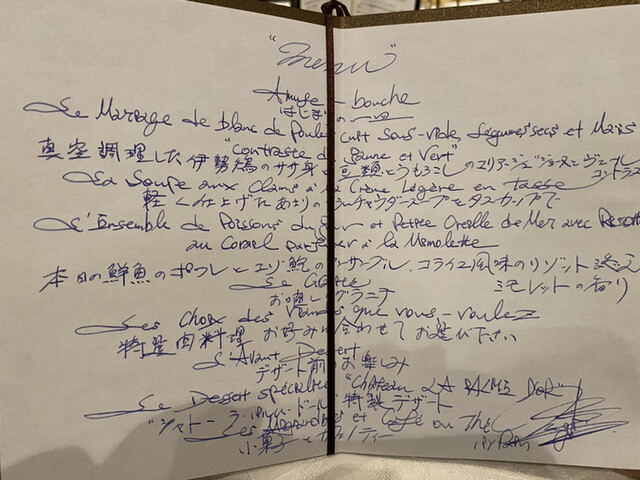 "Menu"
Amuse-bouche
はじまりの一皿
Le Mariage de blanc de Poulet cuit sous-vide, Légumes secs et Maïs
"contraste de Jaune et Vert"
真空調理した伊勢鶏のササ身と豆類とうもろこしのマリアージュ "ジョーヌとヴェールのコントラスト
La Soupe aux Clams à la Crème Légère en tasse
軽く仕上げたあさりのクラムチャウダースープをタスカップで
L'Ensemble de Poissons du jour et Petite Oreille de Mer avec Risotto
au Corail parfumer à la Mimolette
本日の鮮魚のポワレとエゾ鮑のアンサンブル、コライユ風味のリゾット添え
ミモレットの香り
Le Granité
お口直しのグラニテ
Les Choix des Viandes que vous-voulez
特選肉料理 お好みに合わせてお選び下さい
L'Avant Dessert
デザート前のお楽しみ
Le Dessert spécialité "Château LA PALME D'OR"
"シャトーラ・パルム・ドール" 特製デザート
Les Mignardises et Café ou Thé
小菓子とカフェ/ティー